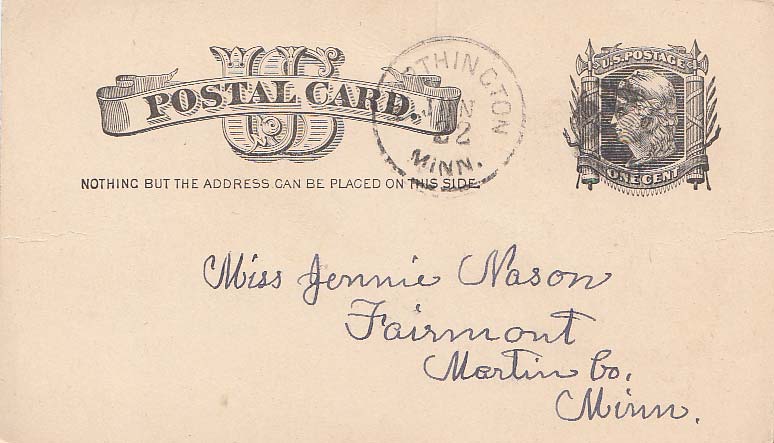 US
POSTAL CARD.
NOTHING BUT THE ADDRESS CAN BE PLACED ON THIS SIDE.
JAN
22
MINN.
U.S. POSTAGE
ONE CENT
Miss Jennie Nason
Fairmont
Martin Co.
Minn.